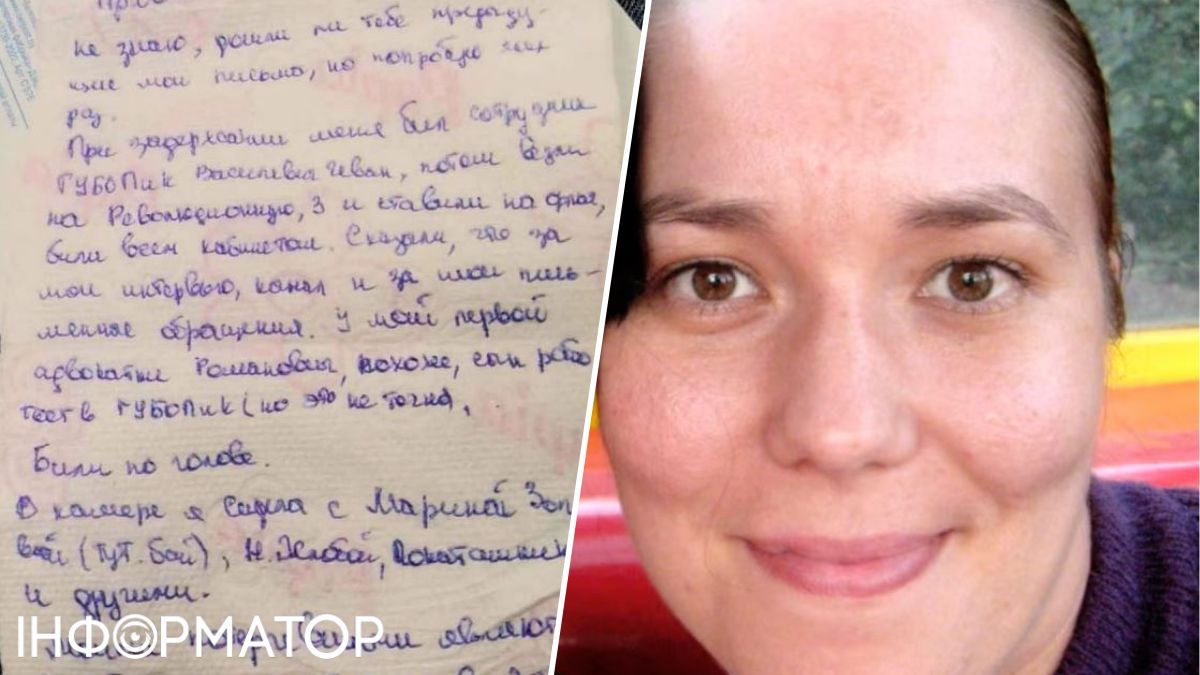 не знаю, дошли ли тебе предыду-
щие мои письма, но попробую
раз.
При задержании меня бил сотрудник
ГУБОПиК Василевич Иван, потом везли
на Революционную, 3 и ставили на флаг,
били всем кабинетом. Сказали, что за
мои интервью, канал и за мои пись-
менные обращения. У моей первой
адвокатки Романовой, похоже, сын рабо
тает в ГУБОПиК (но это не точно).
Били по голове.
В камере я сидела с Мариной Зол
вой (тут.бай), Н.
и другими.
ІНФОРМАТОР